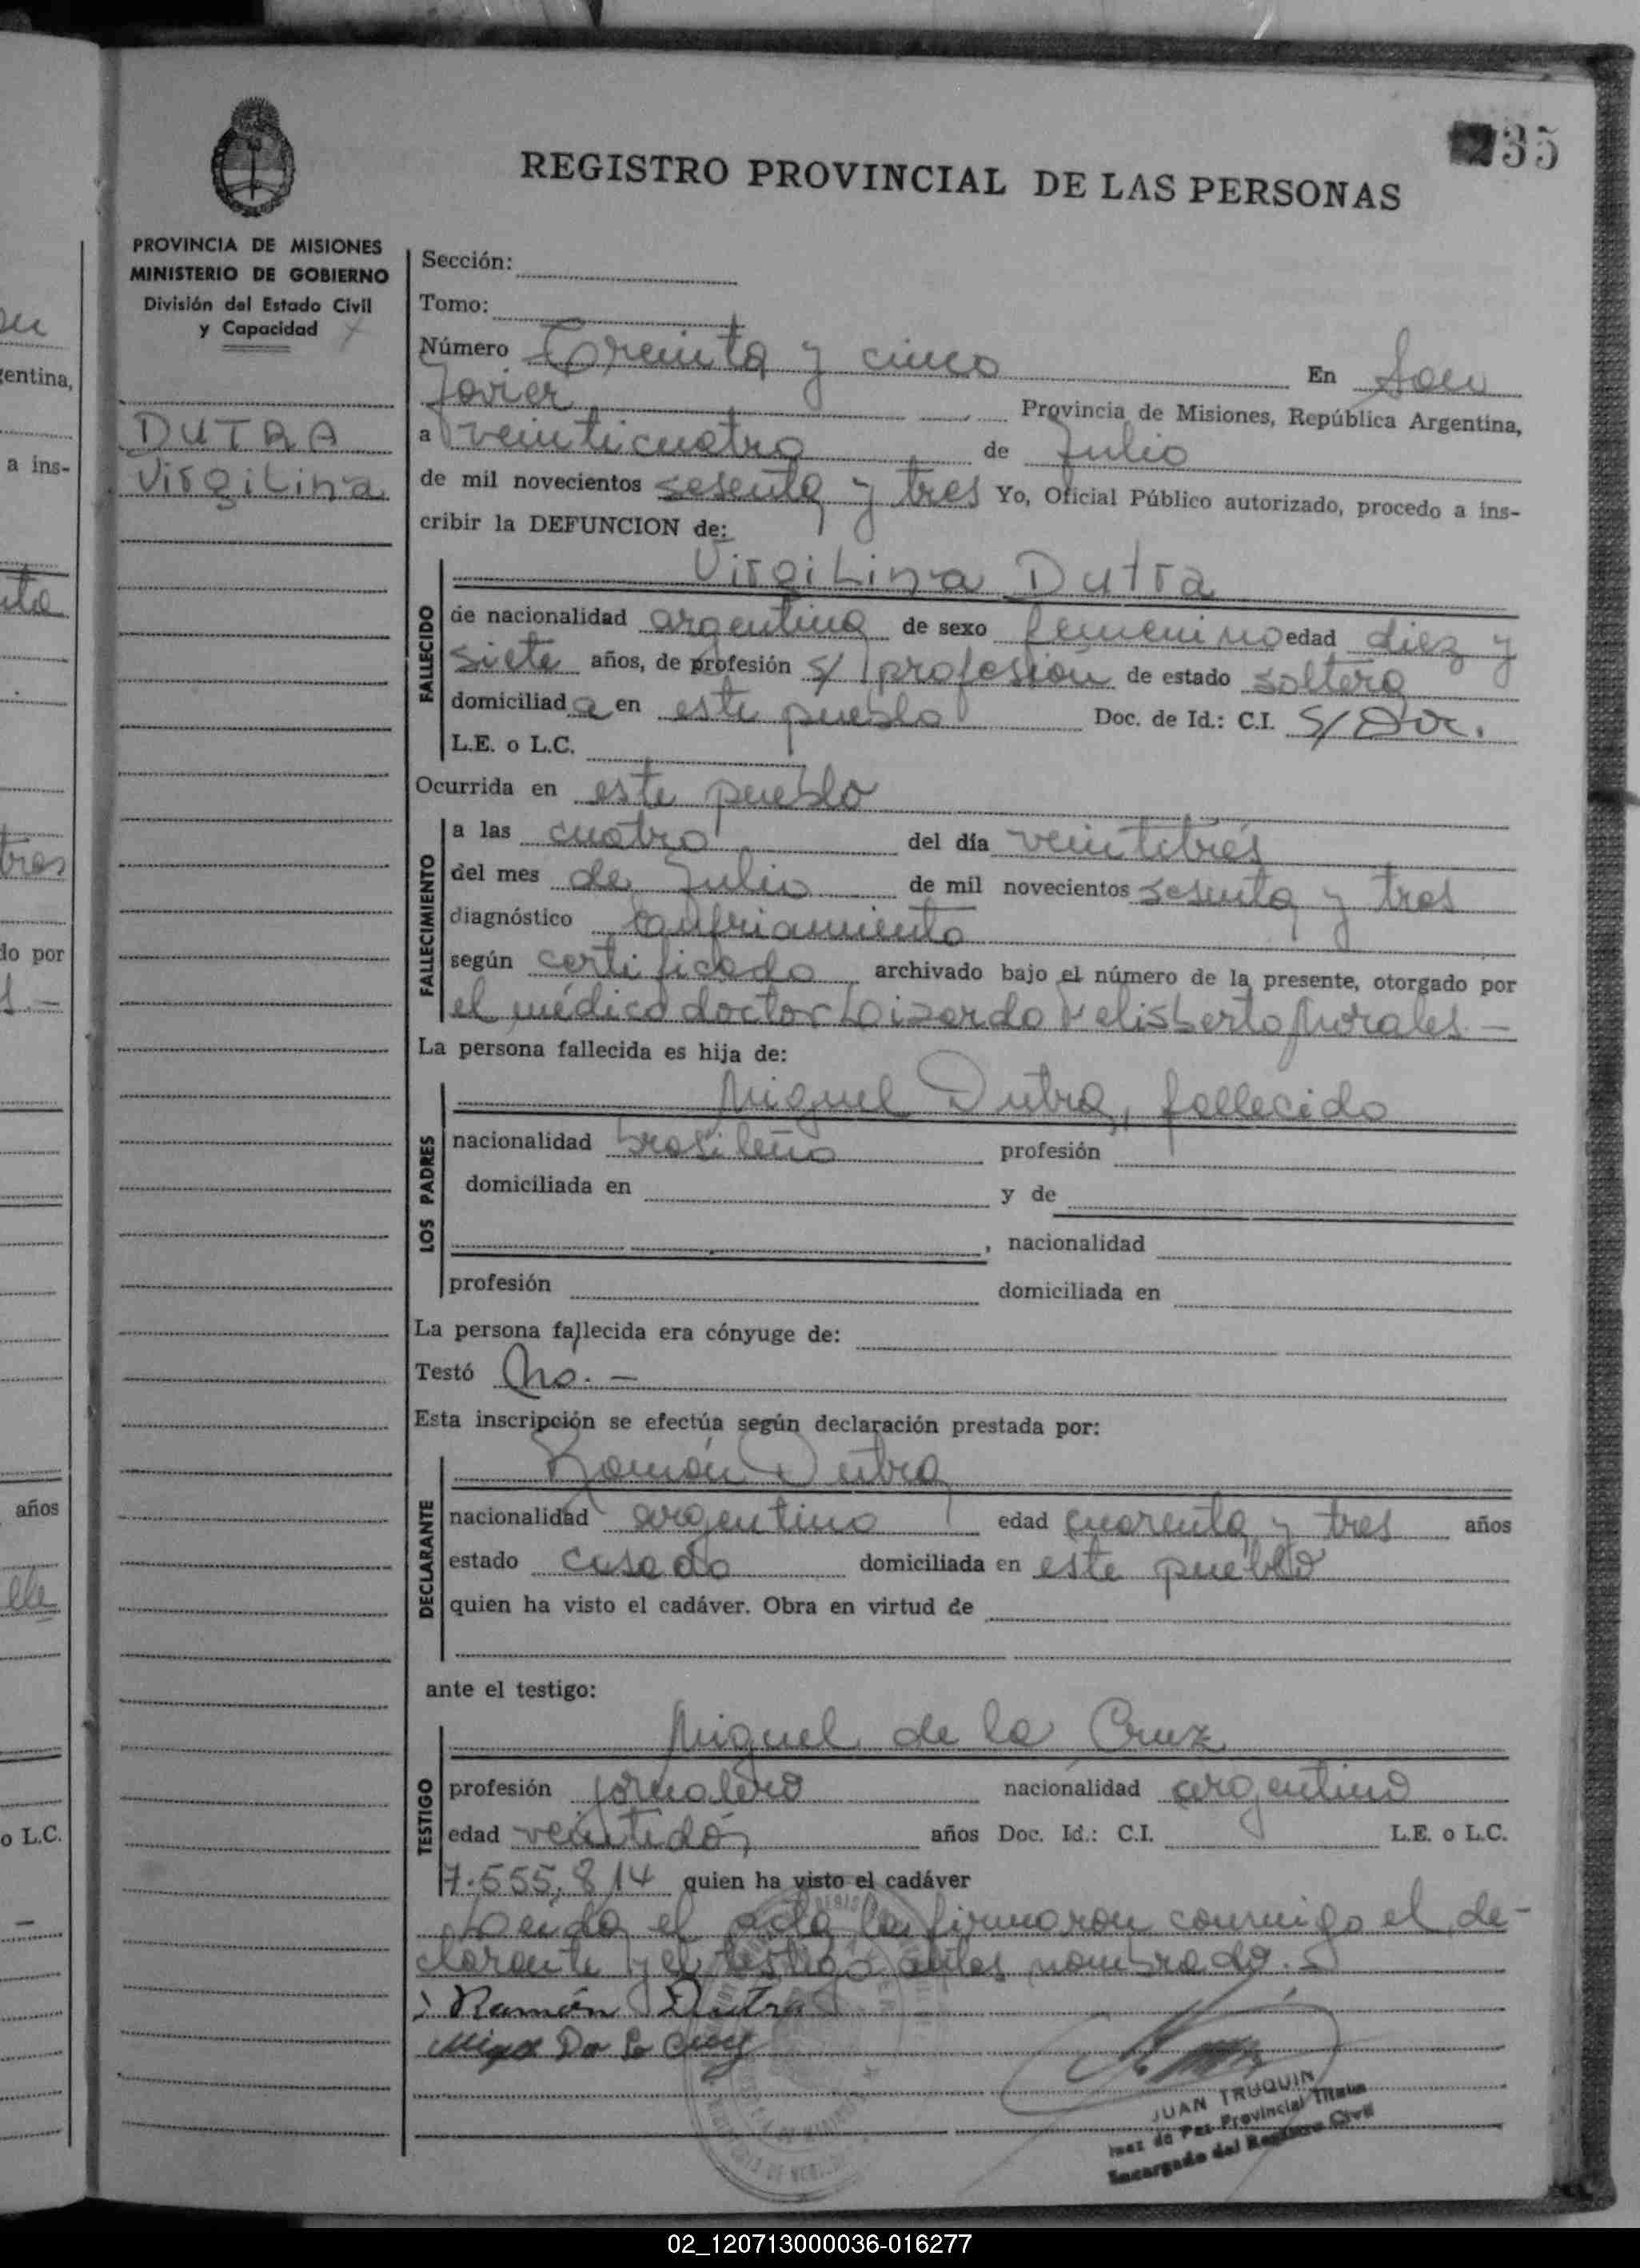 35
REGISTRO PROVINCIAL DE LAS PERSONAS
PROVINCIA DE MISIONES
MINISTERIO DE GOBIERNO
División del Estado Civil
y Capacidad
DUTRA
Virgilina
Sección:
Tomo:
Número Treinta y cinco En San
Javier Provincia de Misiones, República Argentina,
a veinticuatro de Julio
de mil novecientos sesenta y tres Yo, Oficial Público autorizado, procedo a ins-
cribir la DEFUNCION de:
Virgilina Dutra
FALLECIDO
de nacionalidad argentina de sexo femenino edad diez y
siete años, de profesión s/ profesión de estado soltera
domiciliada en este pueblo Doc. de Id.: C.I. S/ Doc.
L.E. o L.C.
Ocurrida en este pueblo
FALLECIMIENTO
a las cuatro del día veintitrés
del mes de Julio de mil novecientos sesenta y tres
diagnóstico Enfriamiento
según certificado archivado bajo el número de la presente, otorgado por
el médico doctor Lizardo Felisberto Morales -
La persona fallecida es hija de:
LOS PADRES
Miguel Dutra, fallecido
nacionalidad brasileño profesión
domiciliada en y de
, nacionalidad
profesión domiciliada en
La persona fallecida era cónyuge de:
Testó No. -
Esta inscripción se efectúa según declaración prestada por:
DECLARANTE
Ramón Dutra
nacionalidad argentino edad cuarenta y tres años
estado casado domiciliada en este pueblo
quien ha visto el cadáver. Obra en virtud de
ante el testigo:
TESTIGO
Miguel de la Cruz
profesión jornalero nacionalidad argentino
edad veintidós años Doc. Id.: C.I. L.E. o L.C.
7.555.814 quien ha visto el cadáver
Leída el acta la firmaron conmigo el de-
clarante y el testigo antes nombrado.
Ramón Dutra
JUAN TRUQUIN
Juez de Paz Provincial Titular
Encargado del Registro Civil
entina,
a ins-
tres
do por
años
o L.C.
02_120713000036-016277